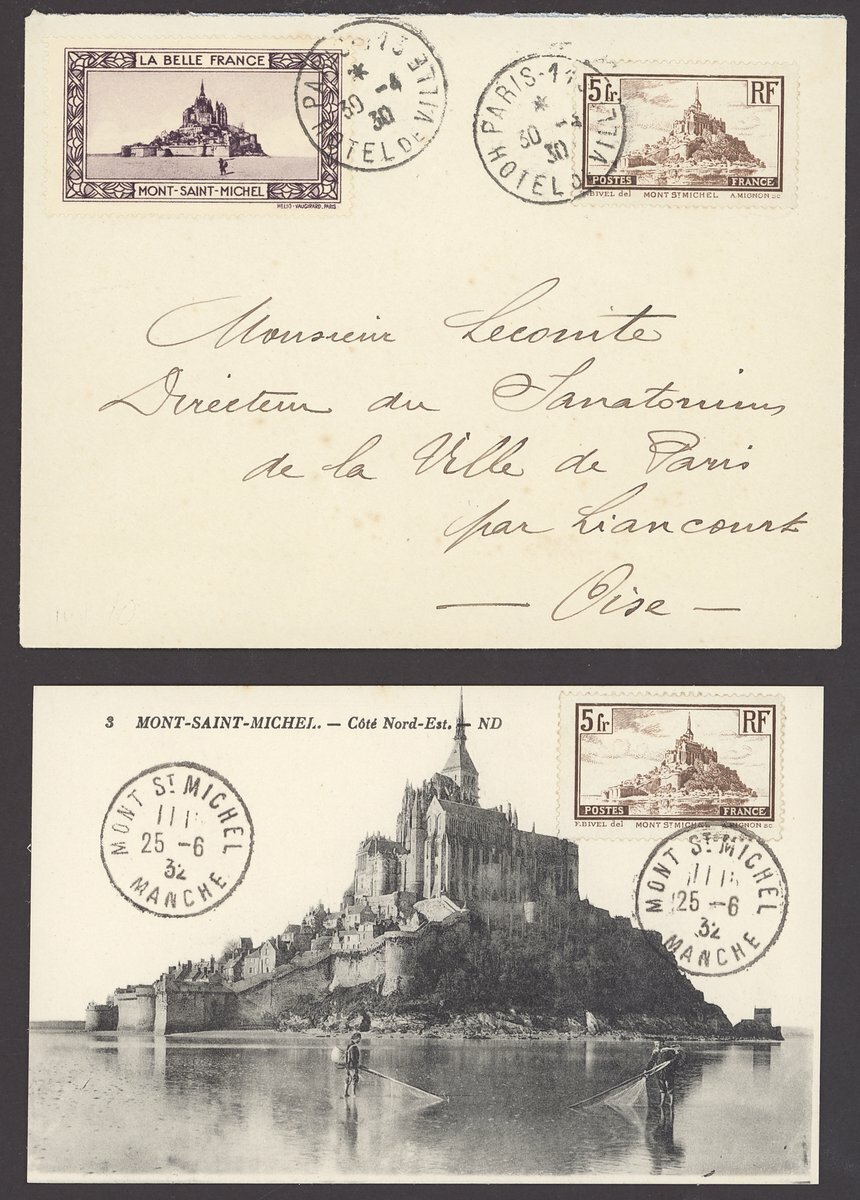 LA BELLE FRANCE
MONT-SAINT-MICHEL
HELIO-VAUGIRARD, PARIS
PARIS-113
HOTEL DE VILLE
*
30 -4
30
PARIS-113
HOTEL DE VILLE
*
30 -4
30
5 fr. RF
POSTES FRANCE
F.BIVEL del MONT ST MICHEL A.MIGNON sc
Monsieur Lecomte
Directeur du Sanatorium
de la Ville de Paris
par Liancourt
— Oise —
3 MONT-SAINT-MICHEL. — Côté Nord-Est. — ND
5 fr RF
POSTES FRANCE
F.BIVEL del MONT ST MICHEL A.MIGNON sc
MONT ST MICHEL
25 -6
32
MANCHE
MONT ST MICHEL
25 -6
32
MANCHE